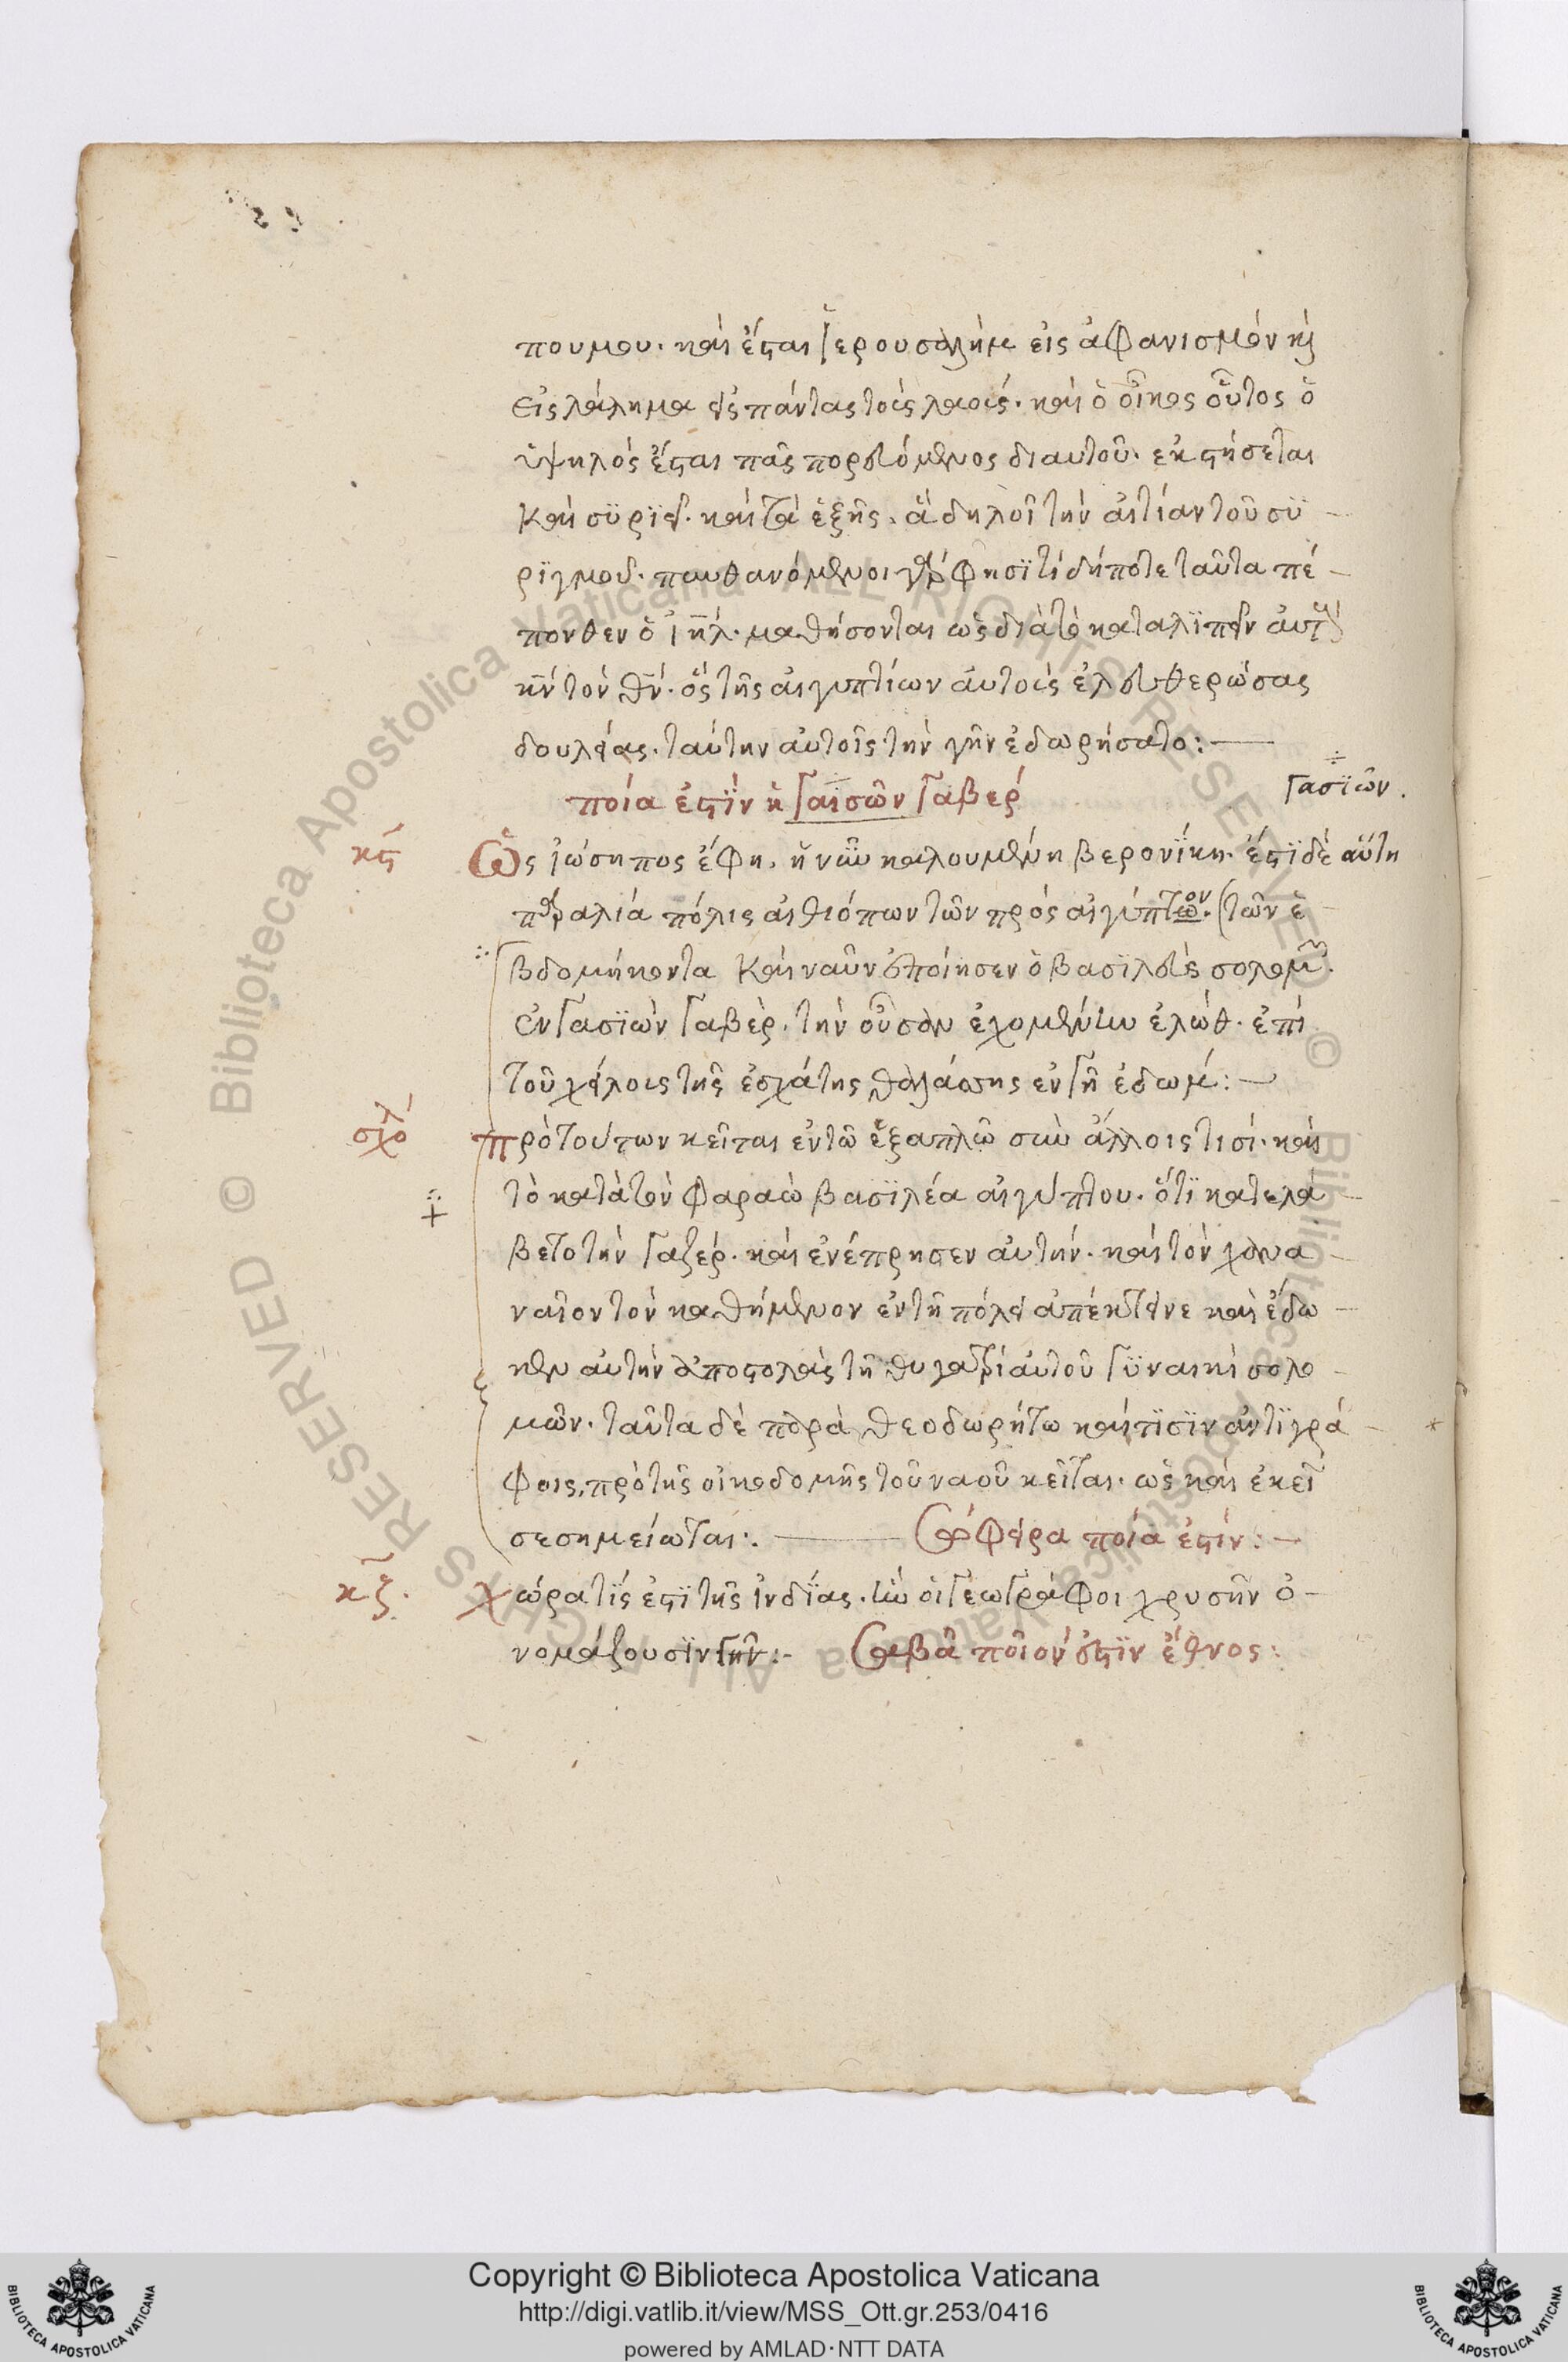 που μου. καὶ ἔσται ἱερουσαλὴμ εἰς ἀφανισμὸν κ̀
εἰς λάλημα εἰς πάντας τοὺς λαούς. καὶ ὁ οἶκος οὗτος ὁ
ὑψηλὸς ἔσται πᾶς πορευόμενος δι αυτοῦ. εκστήσεται
Καὶ συριεῖ. καὶ τὰ ἑξῆς. ἃ δηλοῖ τὴν αἰτίαν τοῦ συ
ριγμοῦ. πυνθανόμενοι γάρ φησι τί δήποτε ταῦτα πέ
πονθεν ὁ ἰη̅λ. μαθήσονται ὡς διὰ τὸ καταλιπεῖν αὐτοὺς
κ̅ν τὸν θ̅ν. ὃς τῆς αἰγυπτίων αὐτοὺς ἐλευθερώσας
δουλείας. ταύτην αὐτοῖς τὴν γῆν ἐδωρήσατο:—
ποία ἐστὶν ἡ Γαισῶν Γαβερ
Γασιῶν.
κϛ
Ὡς ἰώσηπος ἔφη. ἡ νῦν καλουμένη βερονίκη. ἔστι δὲ αὕτη
παραλία πόλις αἰθιόπων τῶν πρὸς αἰγύπτῳ. ον (τῶν ἑ
βδομήκοντα Καὶ ναῦν ἐποίησεν ὁ βασιλεὺς σολομῶν.
ἐν Γασιὼν Γαβὲρ. τὴν οὖσαν ἐχομένην ἐλώθ. ἐπὶ
τοῦ χείλους τῆς ἐσχάτης θαλάσσης εν Γῆ ἐδωμ:—
σχολ
πρὸ τούτων κεῖται ἐν τῶ ἑξαπλῶ σὺν ἄλλοις τισί. καὶ
τὸ κατὰ τὸν φαραὼ βασιλέα αἰγύπτου. ὅτι κατελα
βετο τὴν Γαζερ. καὶ ἐνέπρησεν αὐτήν. καὶ τὸν χανα
ναῖον τὸν καθήμενον ἐν τῆ πόλει ἀπέκτεινε καὶ ἔδω
κεν αὐτὴν ἀποστολὰς τῆ θυγατρὶ αὐτοῦ Γυναικὶ σολο
μῶν. ταῦτα δὲ παρὰ θεοδωρήτω καί τισιν ἀντιγρά
φοις, πρὸ τῆς οἰκοδομῆς τοῦ ναοῦ κεῖται. ὡς καὶ ἐκεῖ
σεσημείωται:. —— Σωφειρα ποία ἐστίν:—
κζ.
χώρα τίς ἐστι τῆς ἰνδίας. ἣν οἱ Γεωγράφοι χρυσῆν ὀ
νομάζουσιν Γῆν:- Σαβᾶ ποῖον ἐστὶν ἔθνος:
Copyright © Biblioteca Apostolica Vaticana
http://digi.vatlib.it/view/MSS_Ott.gr.253/0416
powered by AMLAD·NTT DATA